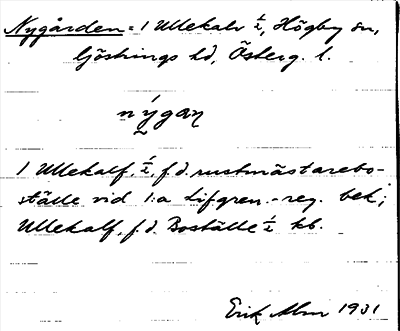 Nygården = 1 Ullekalv ½, Högby sn,
Göstrings hd, Österg. l.
nýgaɳ
1 Ullekalf, ½, f.d. rustmästarebo-
ställe vid 1:a Lifgren.-reg. bek;
Ullekalf, f.d. Boställe ½ kb.
Erik Alm 1931